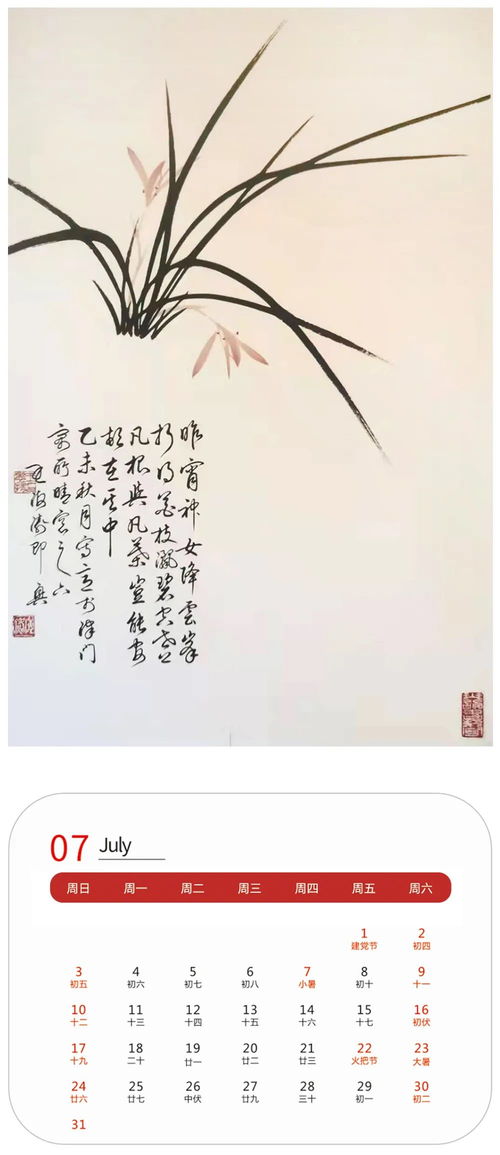 昨宵神女降雲峯
折得花枝灑碧空世上
凡根與凡葉豈能安
頓在其中
乙未秋月寫意於津門
寓所晴窗之
即興
07 July
周日 周一 周二 周三 周四 周五 周六
1 2
建党节 初四
3 4 5 6 7 8 9
初五 初六 初七 初八 小暑 初十 十一
10 11 12 13 14 15 16
十二 十三 十四 十五 十六 十七 初伏
17 18 19 20 21 22 23
十九 二十 廿一 廿二 廿三 火把节 大暑
24 25 26 27 28 29 30
廿六 廿七 中伏 廿九 三十 初一 初二
31